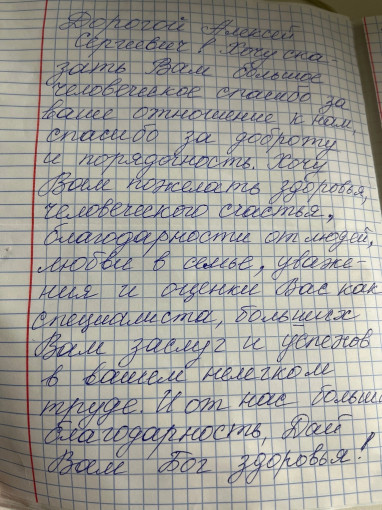 Дорогой Алексей
Сергеевич! Хочу ска-
зать Вам большое
человеческое спасибо за
ваше отношение к нам,
спасибо за доброту
и порядочность. Хочу
Вам пожелать здоровья,
человеческого счастья,
благодарности от людей,
любви в семье, уваже-
ния и оценки Вас как
специалиста, больших
Вам заслуг и успехов
в вашем нелегком
труде. И от нас больш
благодарность, Дай
Вам Бог здоровья!